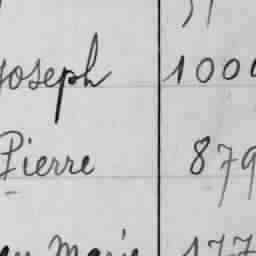 Joseph 100
Pierre 879
Marie 177